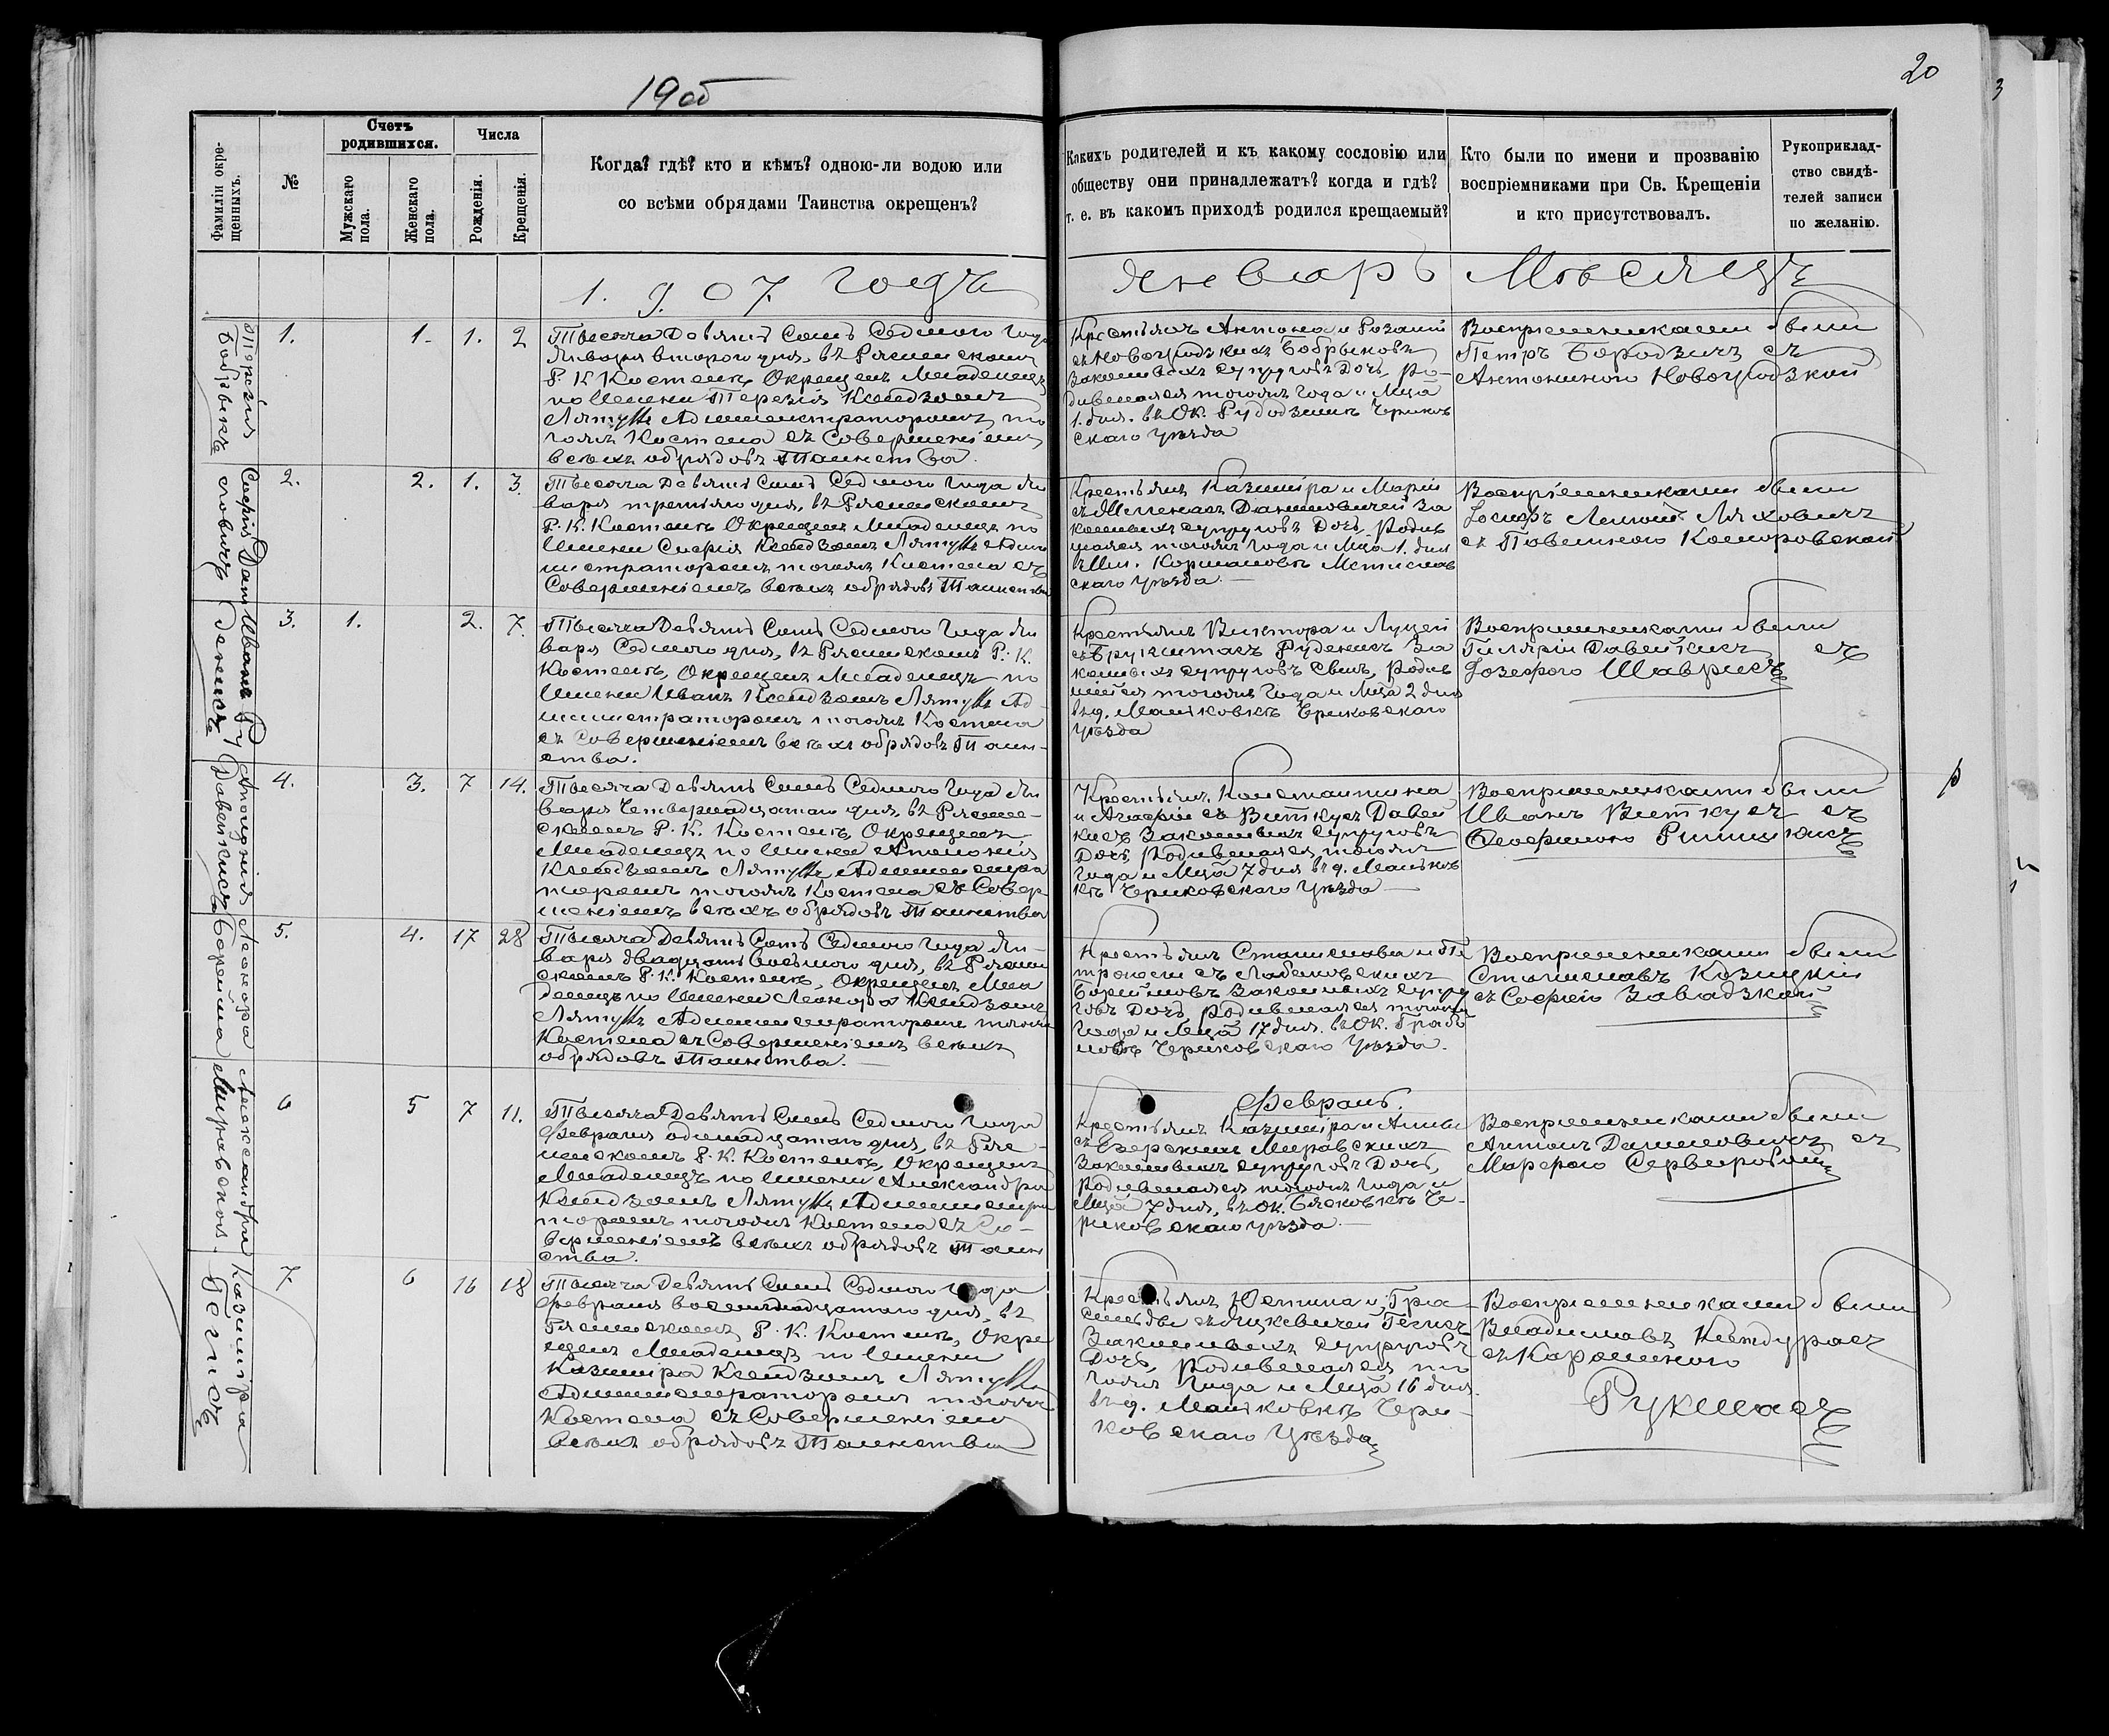 19об
20
3
Фамиліи окре-
щенныхъ.
№
Счетъ
родившихся.
Мужскаго
пола.
Женскаго
пола.
Числа
Рожденія.
Крещенія.
Когда? гдѣ? кто и кѣмъ? одною-ли водою или
со всѣми обрядами Таинства окрещенъ?
Какихъ родителей и къ какому сословію или
обществу они принадлежатъ? когда и гдѣ?
т. е. въ какомъ приходѣ родился крещаемый?
Кто были по имени и прозванію
воспріемниками при Св. Крещеніи
и кто присутствовалъ.
Рукоприклад-
ство свидѣ-
телей записи
по желанію.
1. 9. 0 7. годъ
Январь Мѣсяцъ
Терезія
Бобрыкъ
1. 1. 1. 2
Тысяча Девятьсотъ Седьмого Года
Января второго дня, въ Рясненскомъ
Р. К Костелѣ, Окрещенъ Младенецъ
по Имени Терезія Ксендзомъ
Лятуккъ Администраторомъ то
гожъ Костела съ Совершеніемъ
всѣхъ обрядовъ Таинства
Крестьянъ Антона и Розаліи
съ Новогродзкихъ Бобрыковъ
Законныхъ супруговъ Дочь, ро-
дившаяся тогожъ Года и Мца
1. дня. въ Ок. Чериков
скаго Уѣзда
Воспріемниками были
Петръ Бородзичъ съ
Антониною Новогродзкой
Софія Дани
словичъ
2. 2. 1. 3.
Тысяча Девятьсотъ Седьмого Года Ян
варя третьяго дня, въ Рясненскомъ
Р. К. Костелѣ Окрещенъ Младенецъ по
Имени Софія Ксендзомъ Лятуккъ Адми
нистраторомъ тогожъ Костела съ
Совершеніемъ всѣхъ обрядовъ Таинства
Крестьянъ Казиміра и Маріи
За
конныхъ супруговъ Дочь, Родив
шаяся тогожъ Года и Мца 1. дня
въ Им. Кормановѣ Мстислав
скаго Уѣзда.
Воспріемниками были
Іосифъ Ляховичъ
съ Павелиною Коморовской
Иванъ Ру
денисъ
3. 1. 2. 7.
Тысяча Девятьсотъ Седьмого Года Ян
варя Седьмого дня, въ Рясненскомъ Р. К.
Костелѣ, Окрещенъ Младенецъ по
Имени Иванъ Ксендзомъ Лятуккъ Ад-
министраторомъ тогожъ Костела
съ Совершеніемъ всѣхъ обрядовъ Таин-
ства.
Крестьянъ Виктора и Луціи
Руденисъ За
конныхъ супруговъ Сынъ, Родив
шійся тогожъ Года и Мца 2 дня
въ д. Маньковкѣ Чериковскаго
Уѣзда
Воспріемниками были
Гиляріи Давейкисъ съ
Іозефою Шаврисъ
Аполонія
Давейкисъ
4. 3. 7 14.
Тысяча Девятьсотъ Седьмого Года Ян
варя Четвернадцатаго дня, въ Рясне-
скомъ Р. К. Костелѣ, Окрещенъ
Младенецъ по Имени Аполонія
Ксендзомъ Лятуккъ Администра
торомъ тогожъ Костела съ Совер-
шеніемъ всѣхъ обрядовъ Таинства
Крестьянъ. Константина
и Агафіи съ Виткусъ Давей
кисъ Законныхъ супруговъ
Дочь, Родившаяся тогожъ
Года и Мца 7 дня въ д. Маньков
кѣ Чериковскаго Уѣзда
Воспріемниками были
Иванъ Виткусъ съ
Теофилою
Леокора
Борейша
5. 4. 17 28
Тысяча Девятьсотъ Седьмого Года Ян-
варя двадцать Восьмого дня, въ Ряснен
скомъ Р. К. Костелѣ, Окрещенъ Мла
денецъ по Имени Ксендзомъ
Лятуккъ Администраторомъ тогожъ
Костела съ Совершеніемъ всѣхъ
обрядовъ Таинства.
Крестьянъ Станислава и Пе
съ
Законныхъ супру
говъ Дочь, Родившаяся тогожъ
Года и Мца 17 дня. въ Ок. Грабо
новѣ Чериковскаго Уѣзда.
Воспріемниками были
Станиславъ Козицкій
съ Софіею Завадзкой
Февраль.
Александра
Миравская.
6 5 7 11.
Тысяча Девятьсотъ Седьмого Года
Февраля одинадцатаго дня, въ Ряс-
ненскомъ Р. К. Костелѣ, Окрещенъ
Младенецъ по Имени Александра
Ксендзомъ Лятуккъ Администра
торомъ тогожъ Костела съ Со-
вершеніемъ всѣхъ обрядовъ Таин
ства.
Крестьянъ Казиміра и Анны
съ Езерскихъ Миравскихъ
Законныхъ супруговъ Дочь,
Родившаяся тогожъ Года и
Мца 7 дня, въ Ок. Че-
риковскаго уѣзда.
Воспріемниками были
Антонъ Даниловичъ съ
Казиміра
Гегнсъ
7. 6 16 18
Тысяча Девятьсотъ Седьмого Года
Февраля восемнадцатаго дня, въ
Рясненскомъ Р. К. Костелѣ, Окре
щенъ Младенецъ по Имени
Казиміра Ксендзомъ Лятуккъ
Администраторомъ тогожъ
Костела съ Совершеніемъ
всѣхъ обрядовъ Таинства
Крестьянъ Юстина и
Законныхъ супруговъ
Дочь, Родившаяся то
гожъ Года и Мца 16 дня.
въ д. Маньковкѣ Чери-
ковскаго Уѣзда
Воспріемниками были
Владиславъ
съ Каролиною
Рукшасъ